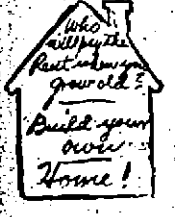 Who
will pay the
Rent when you
grow old?
Build your
own
Home!